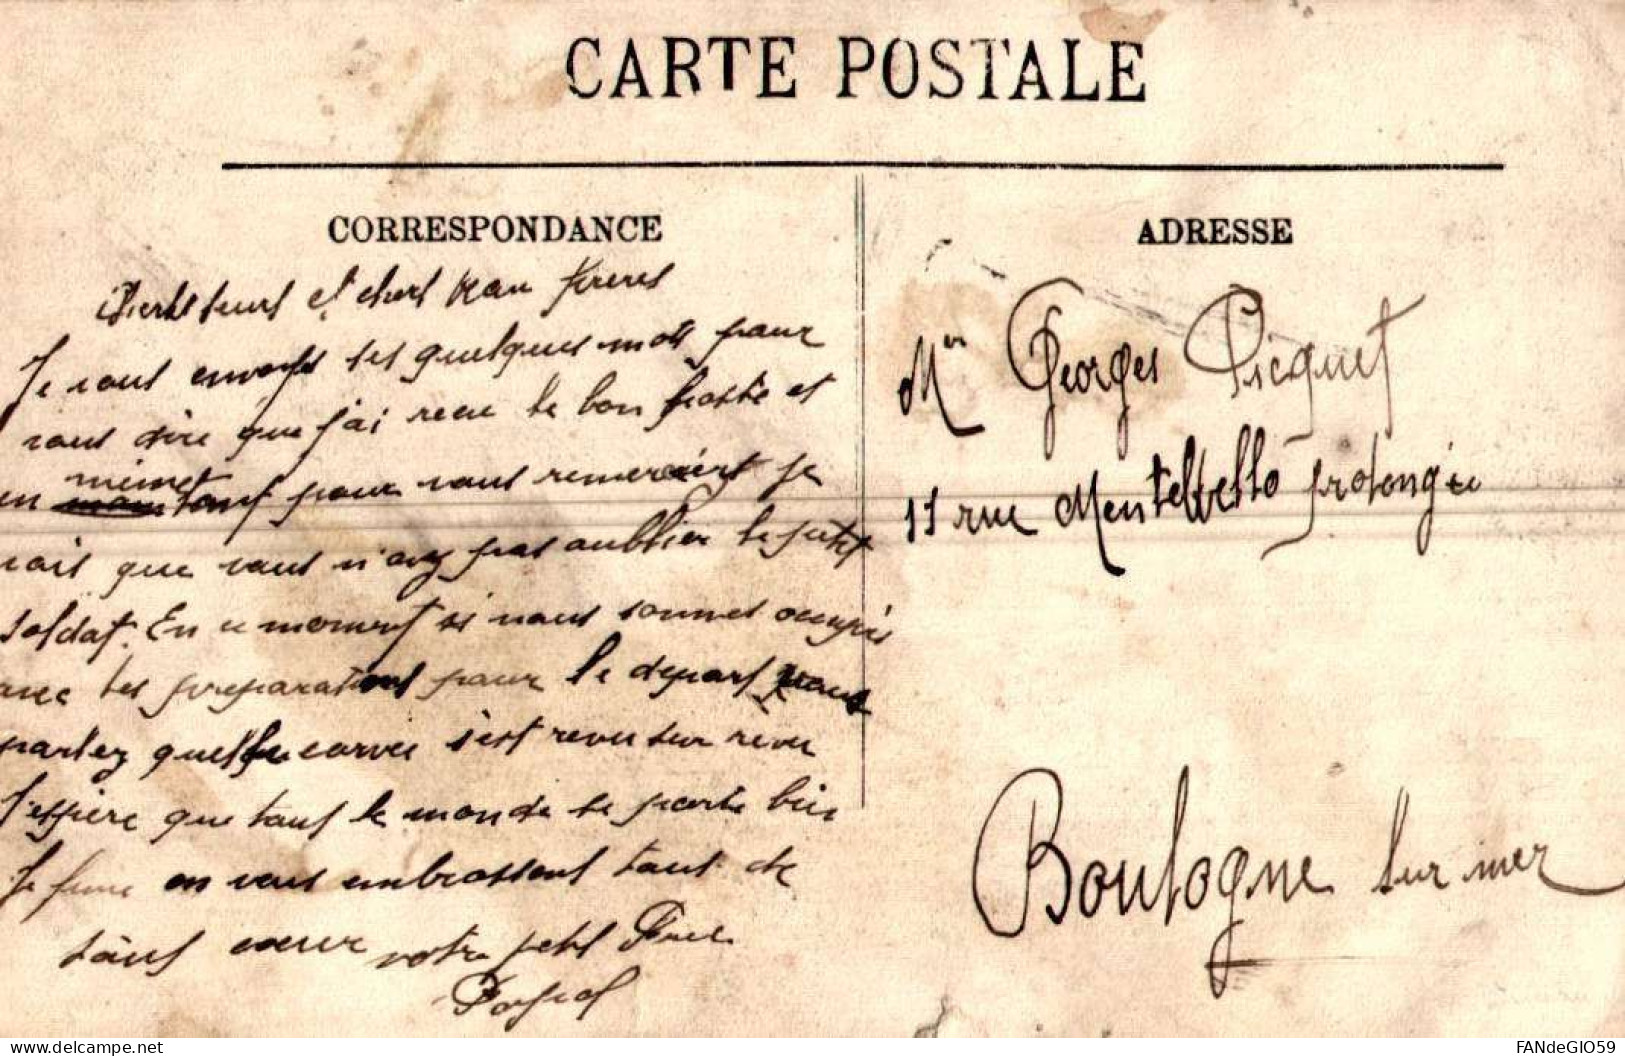 CARTE POSTALE
CORRESPONDANCE
ADRESSE
et chers Beau freres
Je vous envoyer ses quelques mots pour
vous dire que j'ai recu le bon poste et
en même tant pour vous remerciers je
vois que vous n'avez pas oublier le petit
soldat. En ce moment si nous sommes occupés
avec les preparations pour le depart vous
parlez quelle corvee s'est revu sur revu
J'espère que tous le monde se porte bien
Je fini en vous embrassent tous de
tous coeur votre petit Frere
Mr Georges Picquet
11 rue Montebello prolongée
Boulogne sur mer
FANdeGIO59
delcampe.net